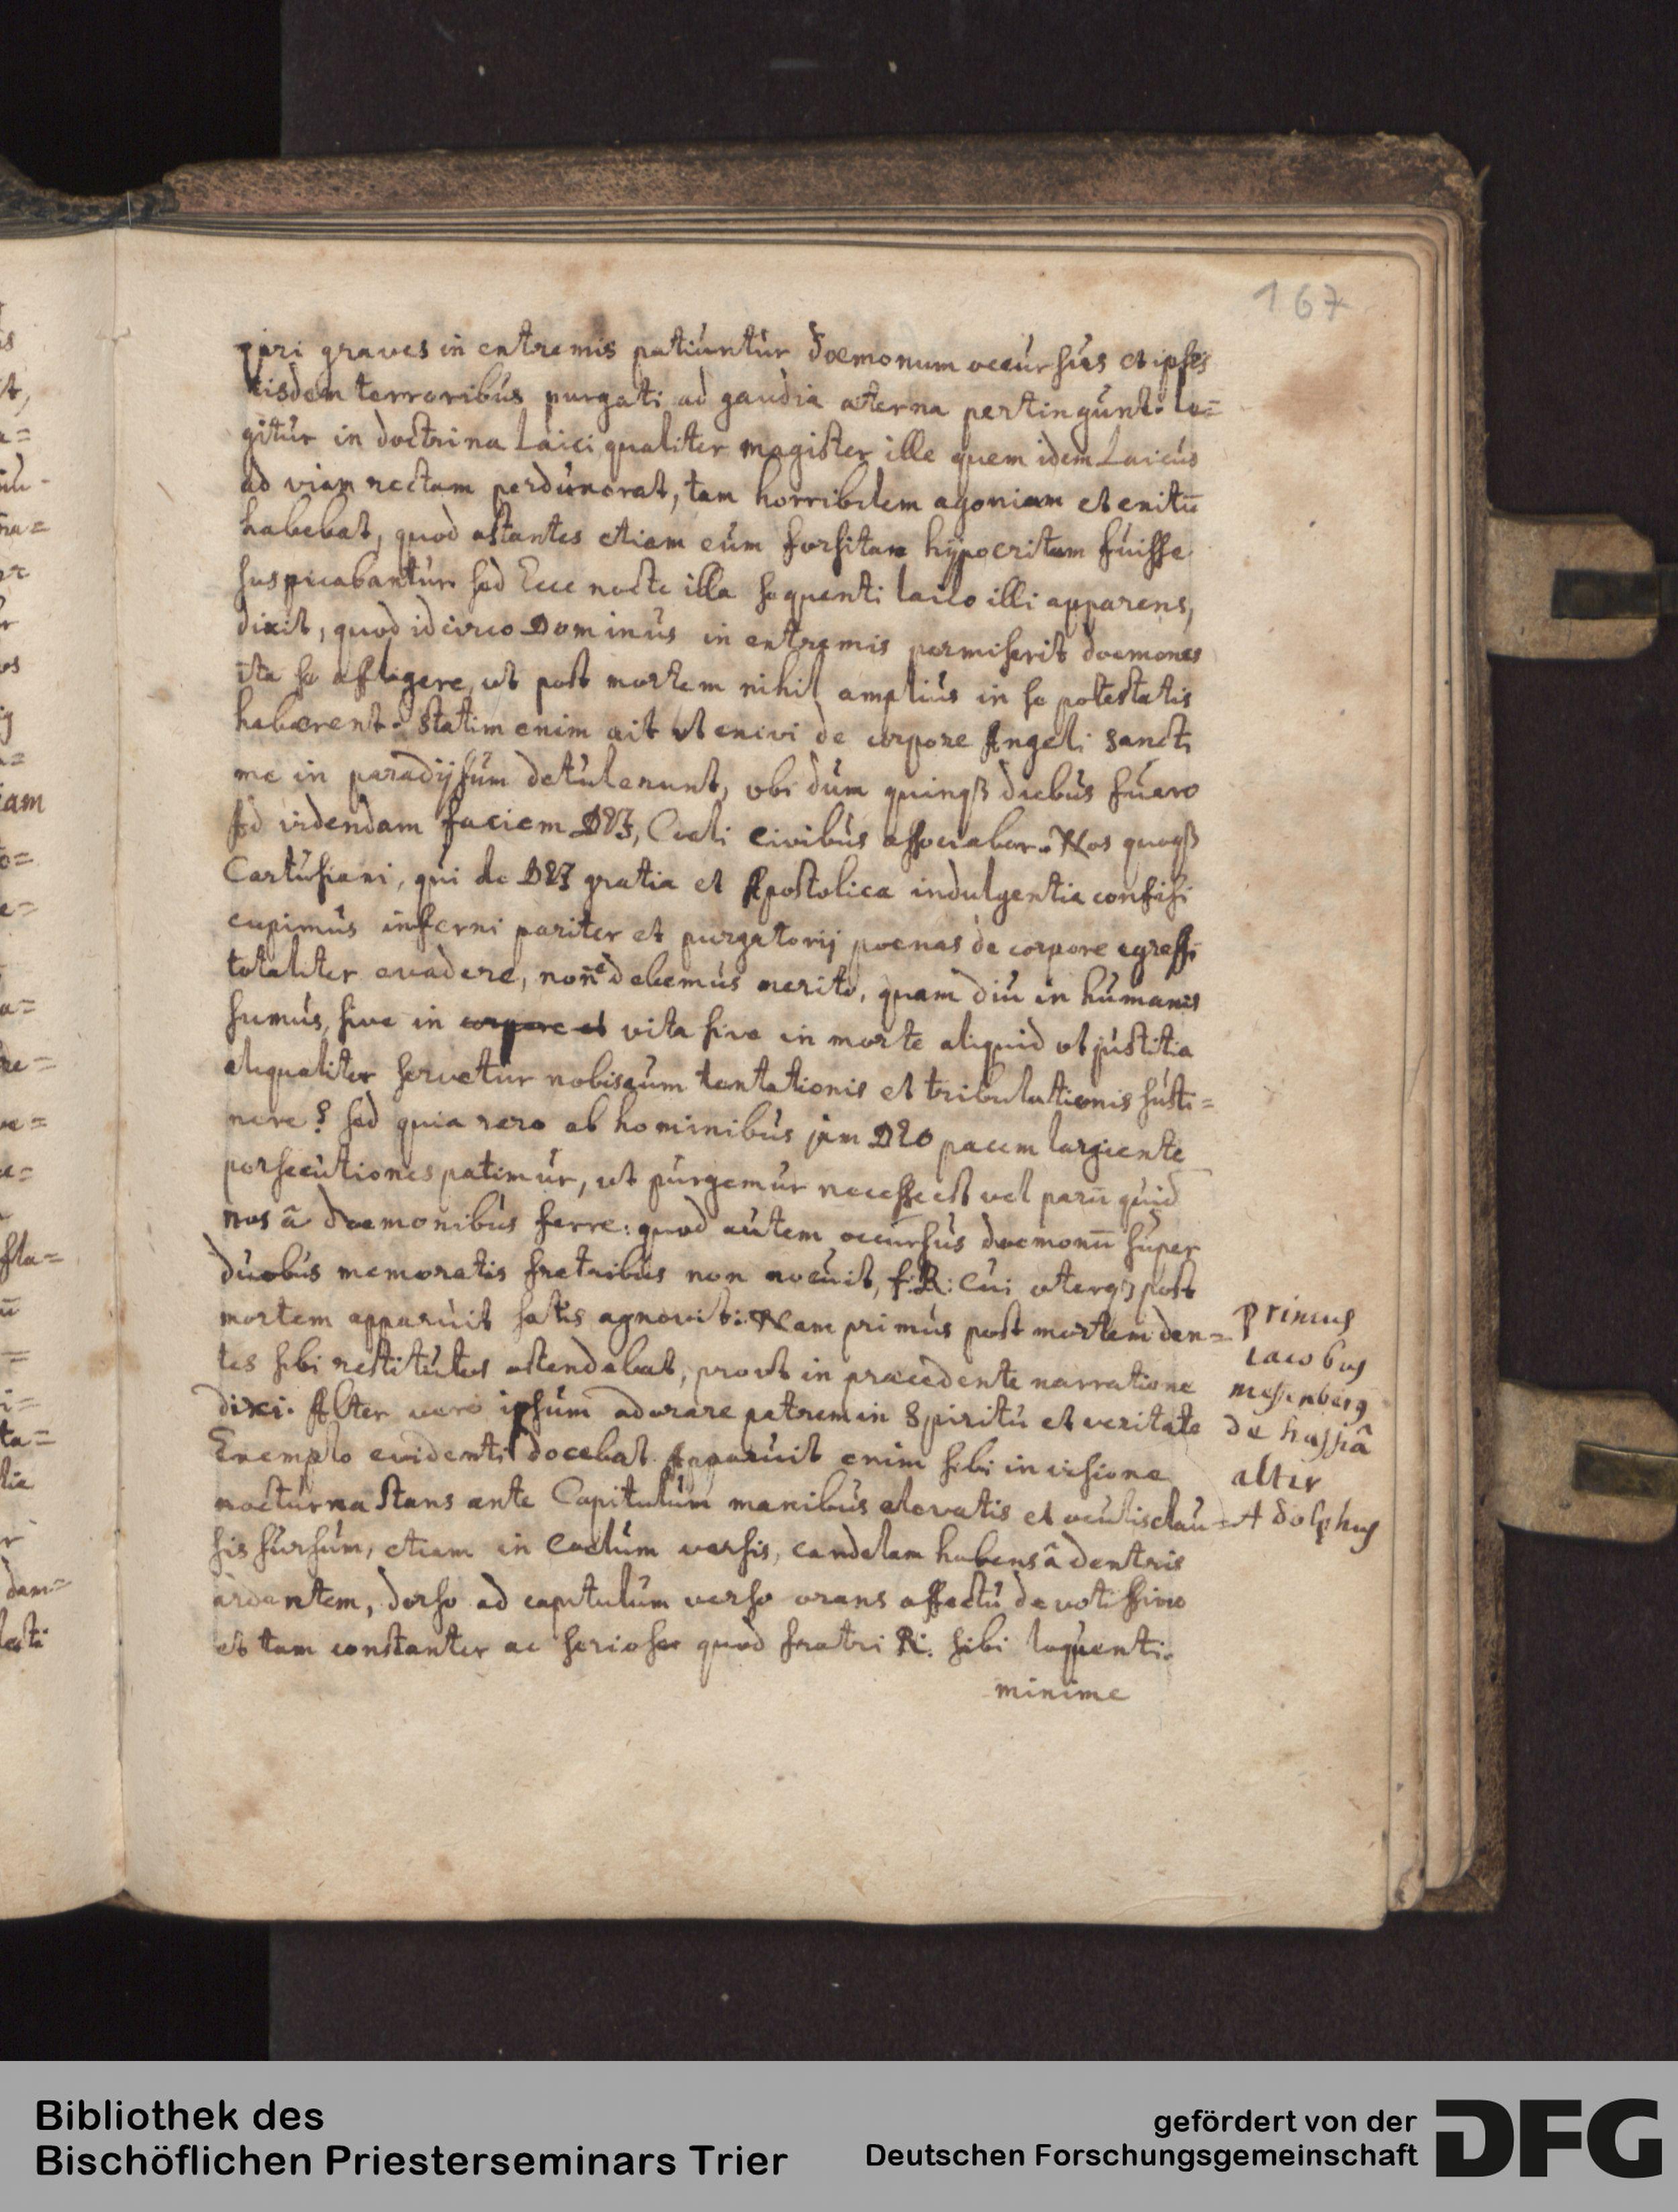 167
viri graves in extremis patiuntur doemonum occursus et ipsis
eisdem terroribus purgati ad gaudia aterna pertingunt. le=
gitur in doctrina Laici qualiter magister ille quem idem Laicus
ad viam rectam perduxerat, tam horribilem agoniam et exitū
habebat, quod astantes etiam eum forsitan hypocritam fuisse
suspicabantur sed Ecce nocte illa sequenti laico illi apparens,
dixit, quod idcirco Dominus in extremis permiserit doemones
ita se affligere, ut post mortem nihil amplius in se potestatis
haberent. Statim enim ait ut exivi de corpore Angeli sancti
me in paradijsum detulerunt, ubi dum quinqß diebus fuero
Ad videndam faciem DEI, Coeli civibus associabor. Nos quoqß
Cartusiani, qui de DEI gratia et Apostolica indulgentia confisi
cupimus inferni pariter et purgatorij poenas de corpore egressi
totaliter evadere, non̄e debemus merito, quam diu in humanis
sumus, sive in corpore et vita sive in morte aliquid ut justitia
aliqualiter servetur nobiscum tentationis et tribulationis susti=
nere? sed quia raro ab hominibus jam DEO pacem largiente
persecutiones patimur, ut purgemur necesse est vel parū quid
nos â doemonibus ferre: quod autem occursus doemonū super
duobus memoratis fratribus non nocuit, f: R: cui uterqȝ post
mortem apparuit satis agnovit: Nam primus post mortem den=
tes sibi restitutos ostendebat, prout in praecedente narratione
dixi. Alter vero ipsum adorare patrem in Spiritu et veritate
Exemplo evidenti docebat. Apparuit enim sibi in visione
nocturna stans ante Capitulum manibus elevatis et oculis clau=
sis sursum, etiam in Coelum versis, candelam habens â dextris
ardentem, dorso ad capitulum verso orans affectu devotissimo
et tam constanter ac seriose quod fratri R: sibi loquenti
minime
Primus
Iacobus
messenberg
de hassiâ
alter
Adolphus
am
fla=
dam=
Bibliothek des
Bischöflichen Priesterseminars Trier
gefördert von der
Deutschen Forschungsgemeinschaft
DFG